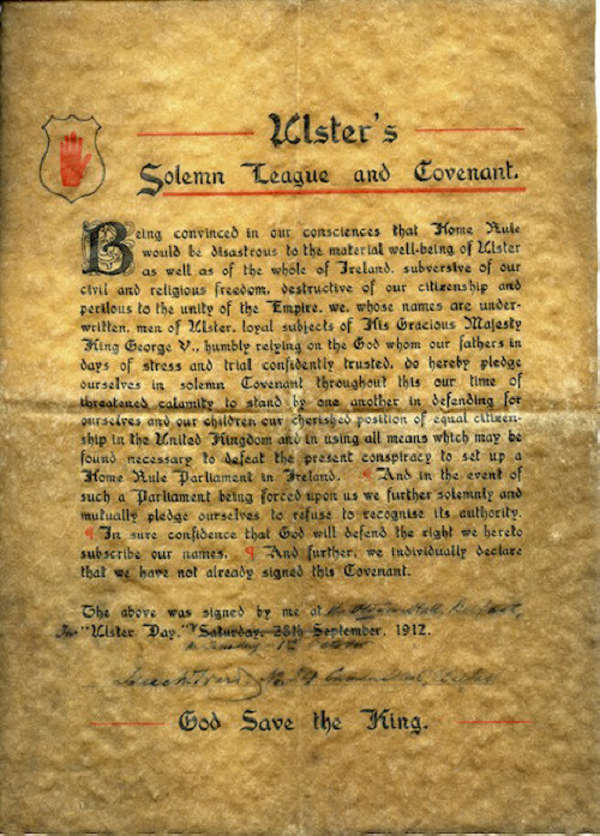 Ulster's
Solemn League and Covenant.
Being convinced in our consciences that Home Rule
would be disastrous to the material well-being of Ulster
as well as of the whole of Ireland, subversive of our
civil and religious freedom, destructive of our citizenship and
perilous to the unity of the Empire, we, whose names are under-
written, men of Ulster, loyal subjects of His Gracious Majesty
King George V., humbly relying on the God whom our fathers in
days of stress and trial confidently trusted, do hereby pledge
ourselves in solemn Covenant throughout this our time of
threatened calamity to stand by one another in defending for
ourselves and our children our cherished position of equal citizen-
ship in the United Kingdom and in using all means which may be
found necessary to defeat the present conspiracy to set up a
Home Rule Parliament in Ireland. ¶ And in the event of
such a Parliament being forced upon us we further solemnly and
mutually pledge ourselves to refuse to recognise its authority.
¶ In sure confidence that God will defend the right we hereto
subscribe our names. ¶ And further, we individually declare
that we have not already signed this Covenant.
The above was signed by me at Hall, Belfast,
"Ulster Day," Saturday, 28th September, 1912.
1st October
God Save the King.